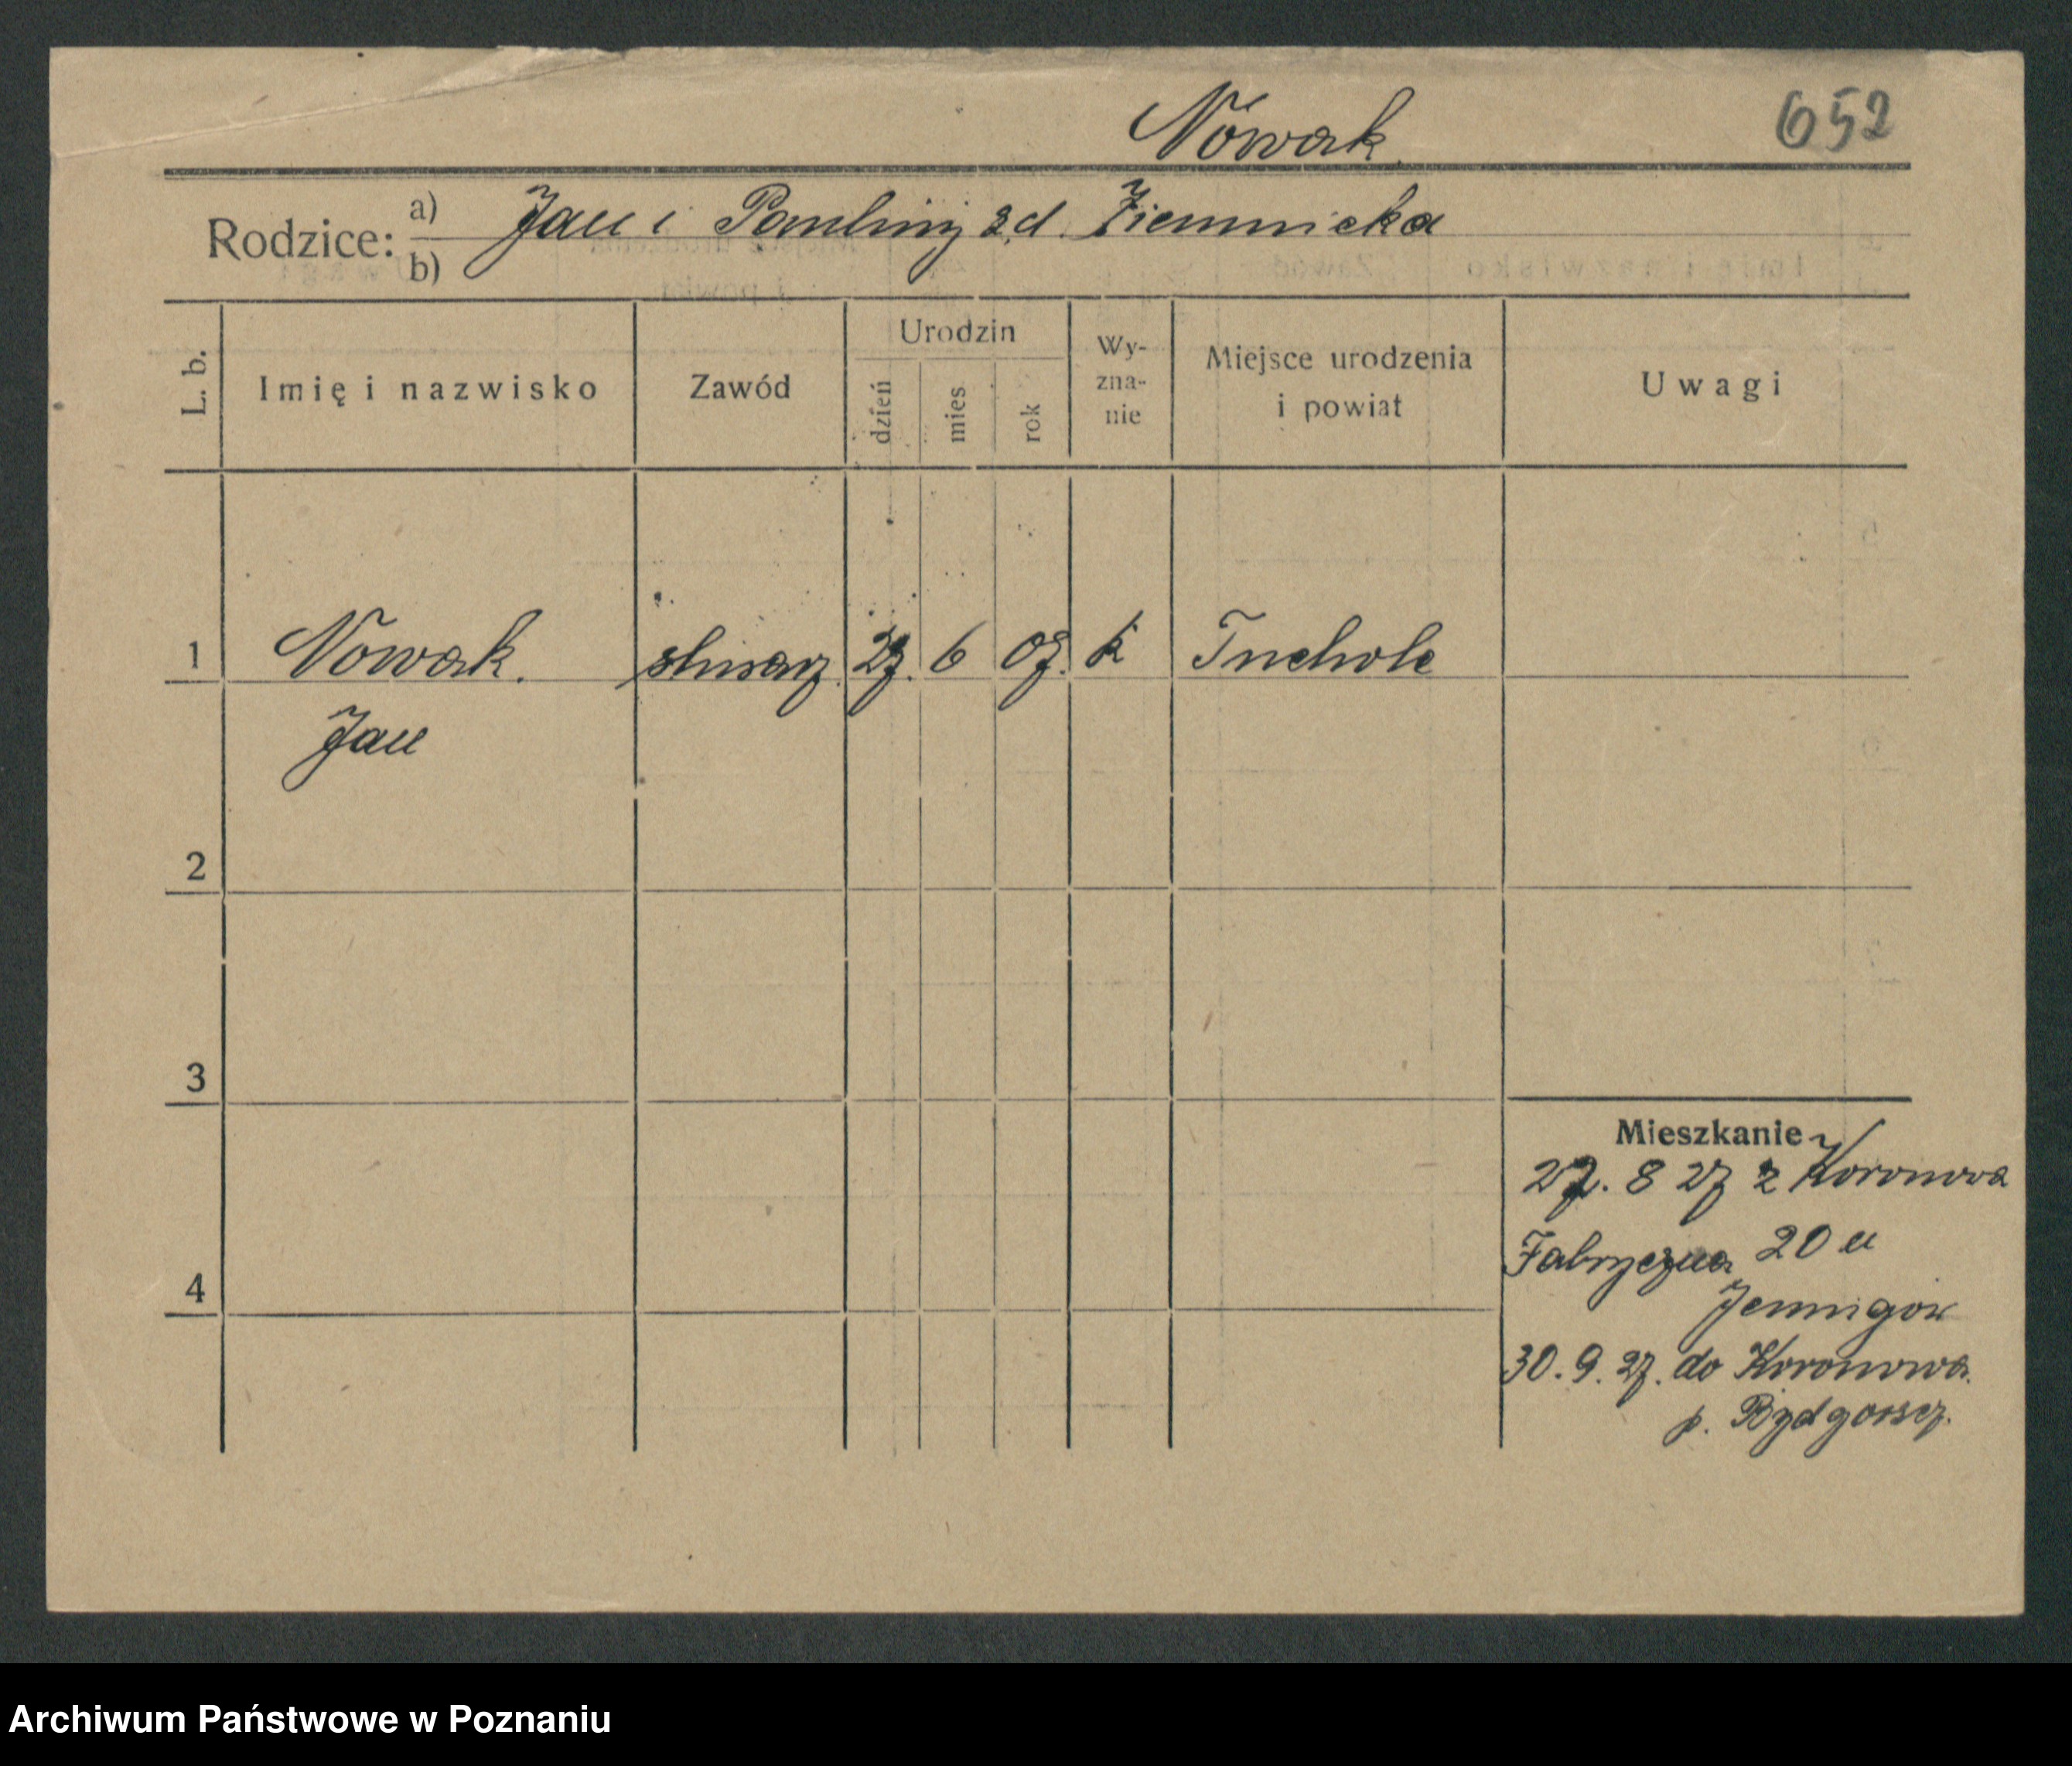 Nowak
652
Rodzice: a) Jan i Pauliny z d. Ziemnicka
b)
L. b. Imię i nazwisko Zawód Urodzin dzień mies rok Wy-zna-nie Miejsce urodzenia i powiat Uwagi
1 Nowak. ślusarz 27. 6 07. k Tuchole
Jan
2
3
4
Mieszkanie
27. 8 27 z Koronowa
Fabryczna 20 u
30. 9. 27. do Koronowa.
p. Bydgoszcz.
Archiwum Państwowe w Poznaniu